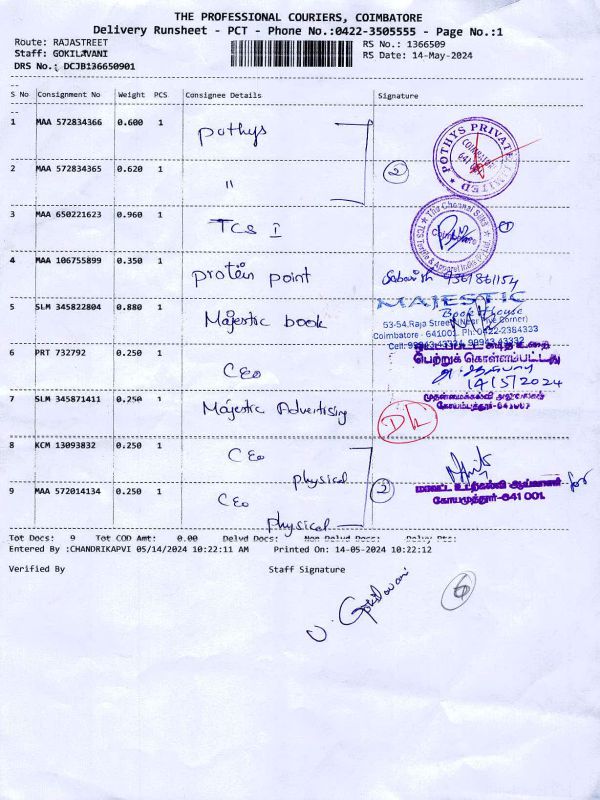 THE PROFESSIONAL COURIERS, COIMBATORE
Delivery Runsheet - PCT - Phone No.:0422-3505555 - Page No.:1
Route: RAJASTREET
Staff: GOKILAVANI
DRS No.: DCJB136650901
RS No.: 1366509
RS Date: 14-May-2024
S No Consignment No Weight PCS Consignee Details Signature
1 MAA 572834366 0.600 1 pothys
POTHYS PRIVATE LIMITED
COIMBATORE
641 001
2 MAA 572834365 0.620 1 " 2
3 MAA 650221623 0.960 1 TCS I 1
The Chennai Silks
Coimbatore
4 MAA 106755899 0.350 1 protein point 9361861154
5 SLM 345822804 0.880 1 Majestic book
MAJESTIC
Book House
53-54, Raja Street (Near Five Corner)
Coimbatore - 641001. Ph: 0422-2384333
6 PRT 732792 0.250 1 CEO
பெற்றுக் கொள்ளப்பட்டது
14/5/2024
முதன்மைக்கல்வி அலுவலகம்
கோயம்புத்தூர்-641001
7 SLM 345871411 0.250 1 Majestic Advertising DL
8 KCM 13093832 0.250 1 CEO
physical
9 MAA 572014134 0.250 1 CEO
physical
2
மாவட்ட உடற்கல்வி ஆய்வாளர் for
கோயமுத்தூர்-641 001.
Tot Docs: 9 Tot COD Amt: 0.00 Delvd Docs: Non Delvd Docs: Delvy Pts:
Entered By :CHANDRIKAPVI 05/14/2024 10:22:11 AM Printed On: 14-05-2024 10:22:12
Verified By Staff Signature
V. Gokilavani
6